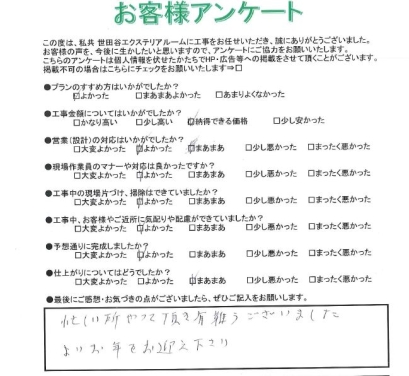 お客様アンケート
この度は、私共 世田谷エクステリアルームに工事をお任せいただき、誠にありがとうございました。
お客様の声を、今後に生かしたいと思いますので、アンケートにご協力をお願いいたします。
こちらのアンケートは個人情報を伏せたかたちでHP・広告等への掲載をさせて頂くことがございます。
掲載不可の場合はこちらにチェックをお願いいたします⇒□
●プランのすすめ方はいかがでしたか？
☑よかった □まあまあよかった □あまりよくなかった
●工事金額についてはいかがでしたか？
□かなり高い □少し高い ☑納得できる価格 □少し安かった
●営業(設計)の対応はいかがでしたか？
□大変よかった ☑よかった □まあまあ □少し悪かった □まったく悪かった
●現場作業員のマナーや対応は良かったですか？
□大変よかった ☑よかった □まあまあ □少し悪かった □まったく悪かった
●工事中の現場片づけ、掃除はできていましたか？
□大変よかった ☑よかった □まあまあ □少し悪かった □まったく悪かった
●工事中、お客様やご近所に気配りや配慮ができていましたか？
□大変よかった ☑よかった □まあまあ □少し悪かった □まったく悪かった
●予想通りに完成しましたか？
□大変よかった ☑よかった □まあまあ □少し悪かった □まったく悪かった
●仕上がりについてはどうでしたか？
□大変よかった □よかった ☑まあまあ □少し悪かった □まったく悪かった
●最後にご感想・お気づきの点がございましたら、ぜひご記入をお願いします。
忙しい所やって頂き有難うございました
よいお年をお迎え下さい